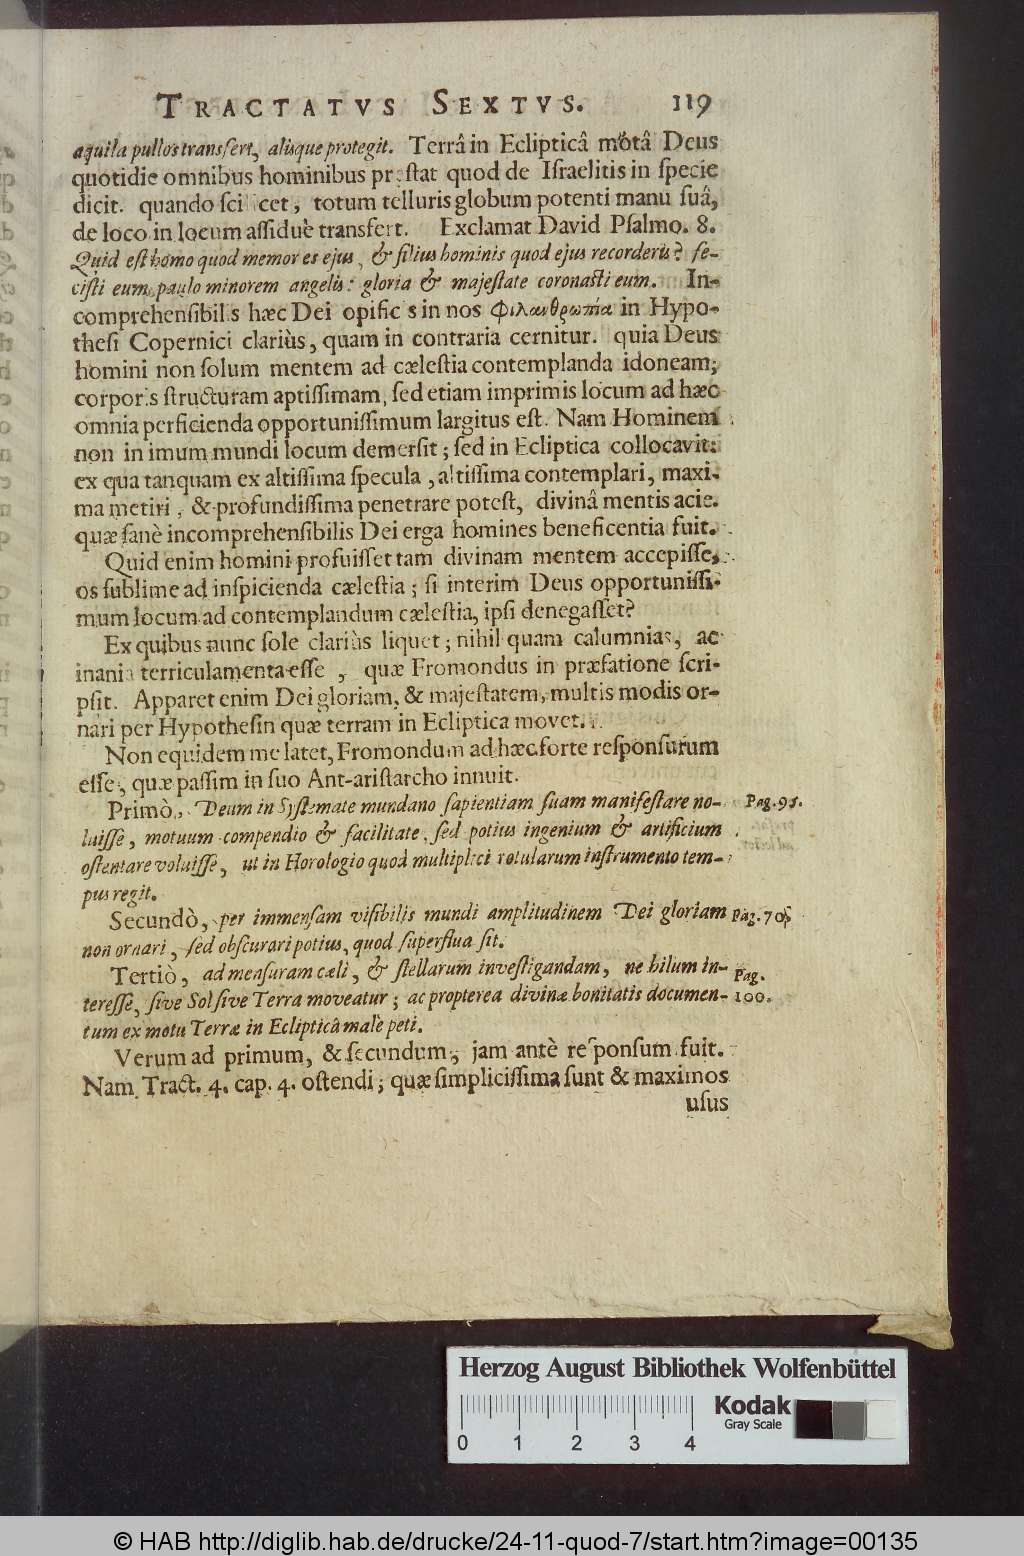 TRACTATVS SEXTVS. 119
aquila pullos transfert, alisque protegit. Terrâ in Eclipticâ môtâ Deus
quotidie omnibus hominibus præstat quod de Iſraelitis in ſpecie
dicit. quando ſcilicet, totum telluris globum potenti manu ſuâ,
de loco in locum aſſiduè transfert. Exclamat David Pſalmo. 8.
Quid eſt homo quod memor es ejus, & filius hominis quod ejus recorderis? fe-
ciſti eum paulo minorem angelis: gloria & majeſtate coronaſti eum. In-
comprehenſibilis hæc Dei opificis in nos Φιλανθρωπία in Hypo-
theſi Copernici clariùs, quam in contraria cernitur. quia Deus
homini non ſolum mentem ad cæleſtia contemplanda idoneam;
corporis ſtructuram aptiſſimam, ſed etiam imprimis locum ad hæc
omnia perficienda opportuniſſimum largitus eſt. Nam Hominem
non in imum mundi locum demerſit; ſed in Ecliptica collocavit:
ex qua tanquam ex altiſſima ſpecula, altiſſima contemplari, maxi-
ma metiri, & profundiſſima penetrare poteſt, divinâ mentis acie.
quæ ſanè incomprehenſibilis Dei erga homines beneficentia fuit.
Quid enim homini profuiſſet tam divinam mentem accepiſſe,
os ſublime ad inſpicienda cæleſtia; ſi interim Deus opportuniſſi-
mum locum ad contemplandum cæleſtia, ipſi denegaſſet?
Ex quibus nunc ſole clariùs liquet; nihil quam calumnias, ac
inania terriculamenta eſſe, quæ Fromondus in præfatione ſcri-
pſit. Apparet enim Dei gloriam, & majeſtatem, multis modis or-
nari per Hypotheſin quæ terram in Ecliptica movet.
Non equidem me latet, Fromondum ad hæc forte reſponſurum
eſſe, quæ paſſim in ſuo Ant-ariſtarcho innuit.
Primò, Deum in Syſtemate mundano ſapientiam ſuam manifeſtare no- Pag. 95.
luiſſe, motuum compendio & facilitate, ſed potius ingenium & artificium
oſtentare voluiſſe, ut in Horologio quod multiplici rotularum inſtrumento tem-
pus regit.
Secundò, per immenſam viſibilis mundi amplitudinem Dei gloriam Pag. 70
non ornari, ſed obſcurari potius, quod ſuperflua ſit.
Tertiò, ad menſuram cæli, & ſtellarum inveſtigandam, ne hilum in- Pag.
tereſſe, ſive Sol ſive Terra moveatur; ac propterea divinæ bonitatis documen- 100.
tum ex motu Terræ in Eclipticâ malè peti.
Verum ad primum, & ſecundum, jam antè reſponſum fuit.
Nam Tract. 4. cap. 4. oſtendi; quæ ſimpliciſſima ſunt & maximos
uſus
Herzog August Bibliothek Wolfenbüttel
Kodak
Gray Scale
0 1 2 3 4
© HAB http://diglib.hab.de/drucke/24-11-quod-7/start.htm?image=00135